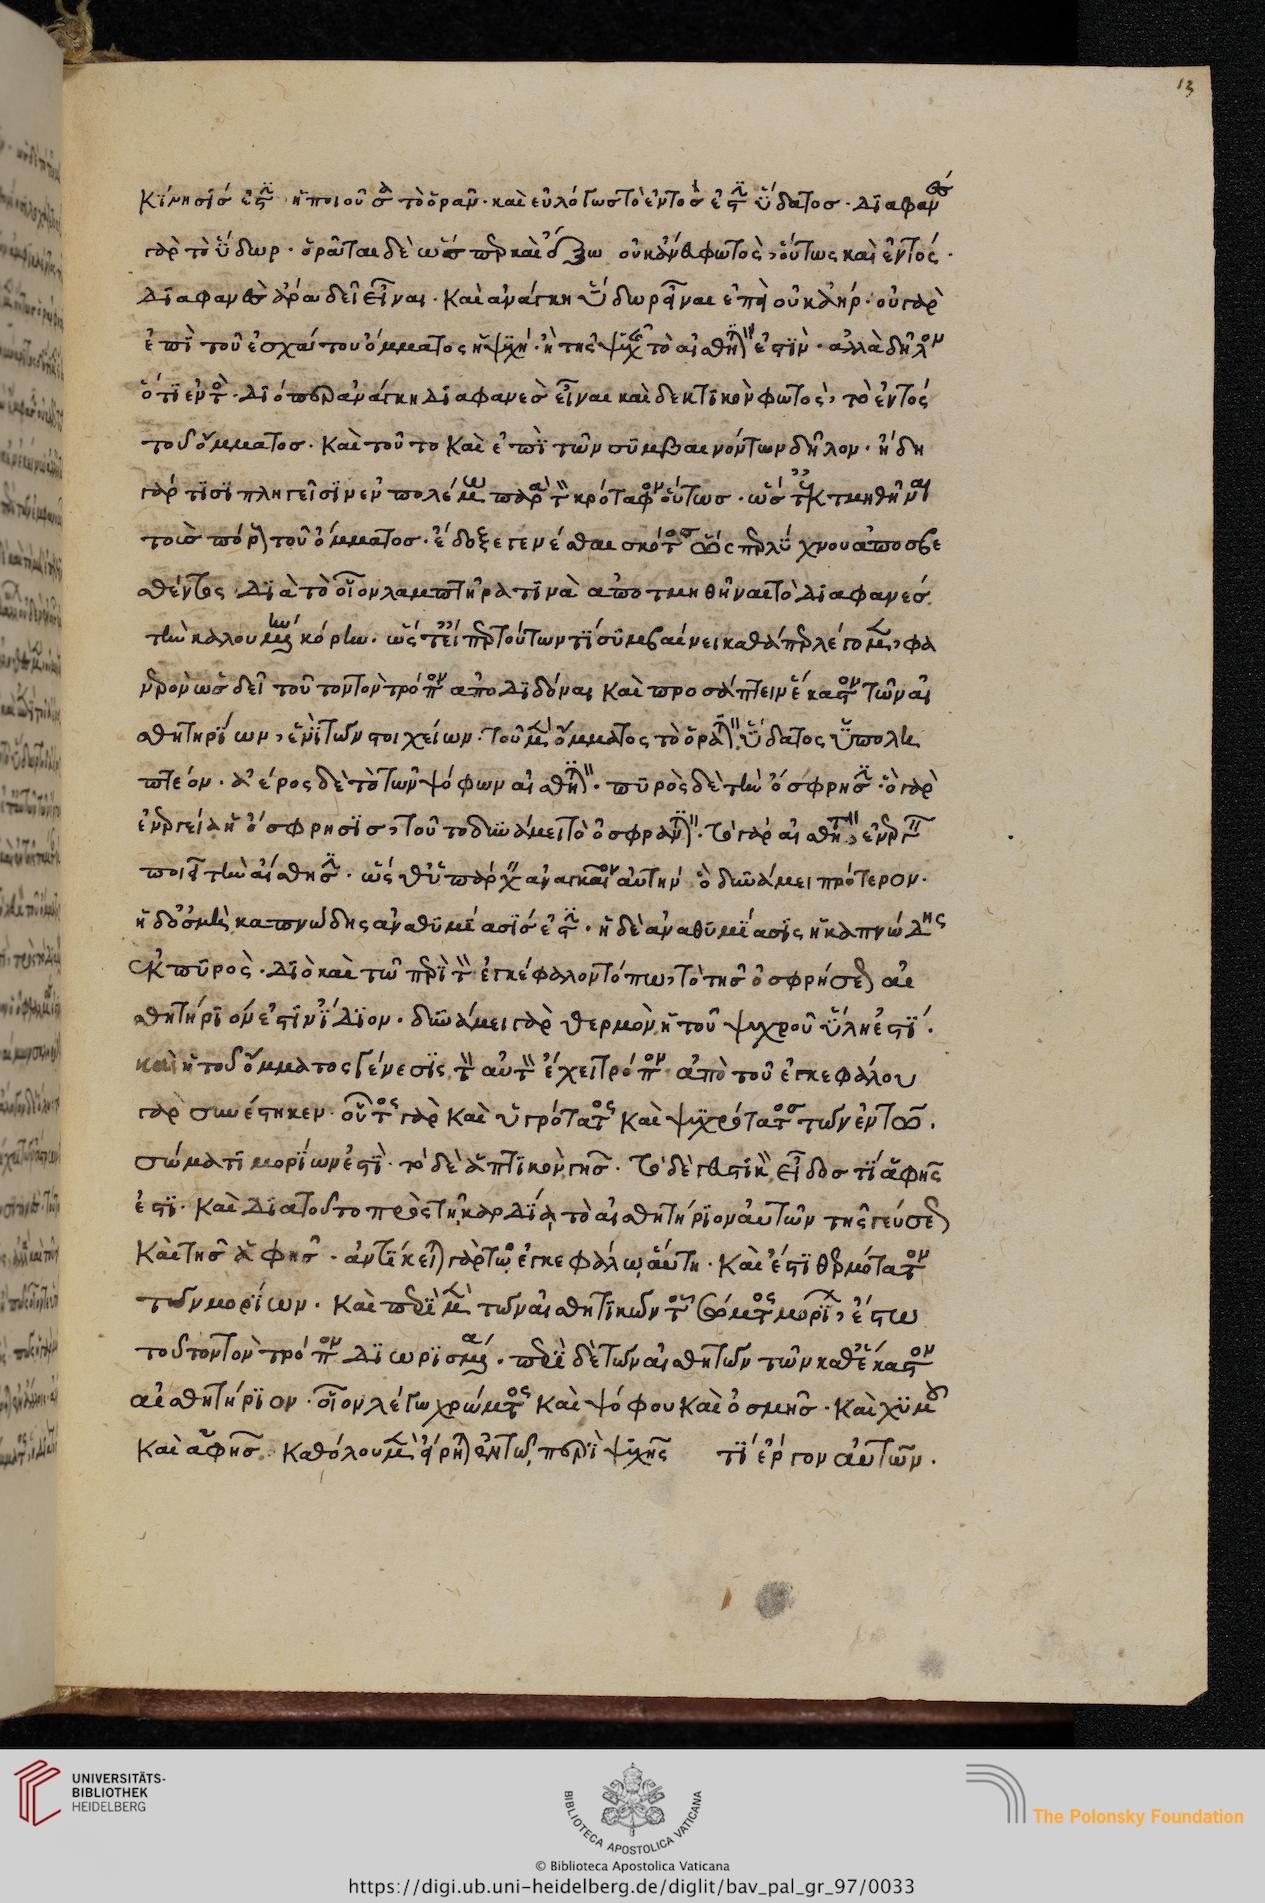 13
κίνησίς ἐστιν ἡ ποιοῦσα τὸ ὁρᾶν· καὶ εὐλόγως τὸ ἐντός ἐστιν ὕδατος· διαφανὲς
γὰρ τὸ ὕδωρ· ὁρᾶται δὲ ὥσπερ καὶ ἔξω οὐκ ἄνευ φωτὸς, οὕτως καὶ ἐντός·
διαφανὲς ἄρα δεῖ εἶναι· καὶ ἀνάγκη ὕδωρ εἶναι ἐπεὶ οὐκ ἀήρ· οὐ γὰρ
ἐπὶ τοῦ ἐσχάτου ὄμματος ἡ ψυχή· ἢ τῆς ψυχῆς τὸ αἰσθητικόν ἐστιν· ἀλλὰ δῆλον
ὅτι ἐντός· διόπερ ἀνάγκη διαφανὲς εἶναι καὶ δεκτικὸν φωτὸς, τὸ ἐντός
τοῦ ὄμματος· καὶ τοῦτο καὶ ἐπὶ τῶν συμβαινόντων δῆλον· ἤδη
γάρ τισι πληγεῖσιν ἐν πολέμῳ παρὰ τὸν κρόταφον οὕτως· ὥστ' ἀποτμηθῆναι
τοὺς πόρους τοῦ ὄμματος· ἔδοξε γενέσθαι σκότος ὥσπερ λύχνου ἀποσβε
σθέντος διὰ τὸ οἷον λαμπτῆρά τινα ἀποτμηθῆναι τὸ διαφανές
τὴν καλουμένην κόρην· ὥστ' εἴπερ τούτων τι συμβαίνει καθάπερ λέγομεν, φα
νερὸν ὡς δεῖ τοῦτον τὸν τρόπον ἀποδιδόναι καὶ προσάπτειν ἕκαστον τῶν αἰ
σθητηρίων, ἑνὶ τῶν στοιχείων· τοῦ μὲν ὄμματος τὸ ὁρατικὸν ὕδατος ὑπολη
πτέον· ἀέρος δὲ τὸ τῶν ψόφων αἰσθητικόν· πυρὸς δὲ τὴν ὄσφρησιν· ὃ γὰρ
ἐνεργείᾳ ἡ ὄσφρησις, τοῦτο δυνάμει τὸ ὀσφραντικόν· τὸ γὰρ αἰσθητὸν ἐνεργεῖν
ποιεῖ τὴν αἴσθησιν· ὥσθ' ὑπάρχειν ἀναγκαῖον αὐτὴν ὃ δυνάμει πρότερον·
ἡ δ' ὀσμὴ καπνώδης ἀναθυμίασίς ἐστιν· ἡ δὲ ἀναθυμίασις ἡ καπνώδης
ἐκ πυρὸς· διὸ καὶ τῷ περὶ τὸν ἐγκέφαλον τόπῳ, τὸ τῆς ὀσφρήσεως αἰ
σθητήριόν ἐστιν ἴδιον· δυνάμει γὰρ θερμὸν ἡ τοῦ ψυχροῦ ὕλη ἐστί·
καὶ ἡ τοῦ ὄμματος γένεσις τὸν αὐτὸν ἔχει τρόπον ἀπὸ τοῦ ἐγκεφάλου
γὰρ συνέστηκεν· οὗτος γὰρ καὶ ὑγρότατος καὶ ψυχρότατος τῶν ἐν τῷ
σώματι μορίων ἐστὶ· τὸ δὲ ἁπτικὸν γῆς· τὸ δὲ γευστικὸν εἶδός τι ἁφῆς
ἐστι· καὶ διὰ τοῦτο πρὸς τῇ καρδίᾳ τὸ αἰσθητήριον αὐτῶν τῆς γεύσεως
καὶ τῆς ἁφῆς· ἀντίκειται γὰρ τῷ ἐγκεφάλῳ αὕτη· καὶ ἔστι θερμότατον
τῶν μορίων· καὶ περὶ μὲν τῶν αἰσθητικῶν τοῦ σώματος μορίων, ἔστω
τοῦτον τὸν τρόπον διωρισμένα· περὶ δὲ τῶν αἰσθητῶν τῶν καθ' ἕκαστον
αἰσθητήριον· οἷον λέγω χρώματος καὶ ψόφου καὶ ὀσμῆς· καὶ χυμοῦ
καὶ ἁφῆς· καθόλου μὲν εἴρηται ἐν τοῖς περὶ ψυχῆς τί ἔργον αὐτῶν·
UNIVERSITÄTS-
BIBLIOTHEK
HEIDELBERG
BIBLIOTECA APOSTOLICA VATICANA
The Polonsky Foundation
© Biblioteca Apostolica Vaticana
https://digi.ub.uni-heidelberg.de/diglit/bav_pal_gr_97/0033